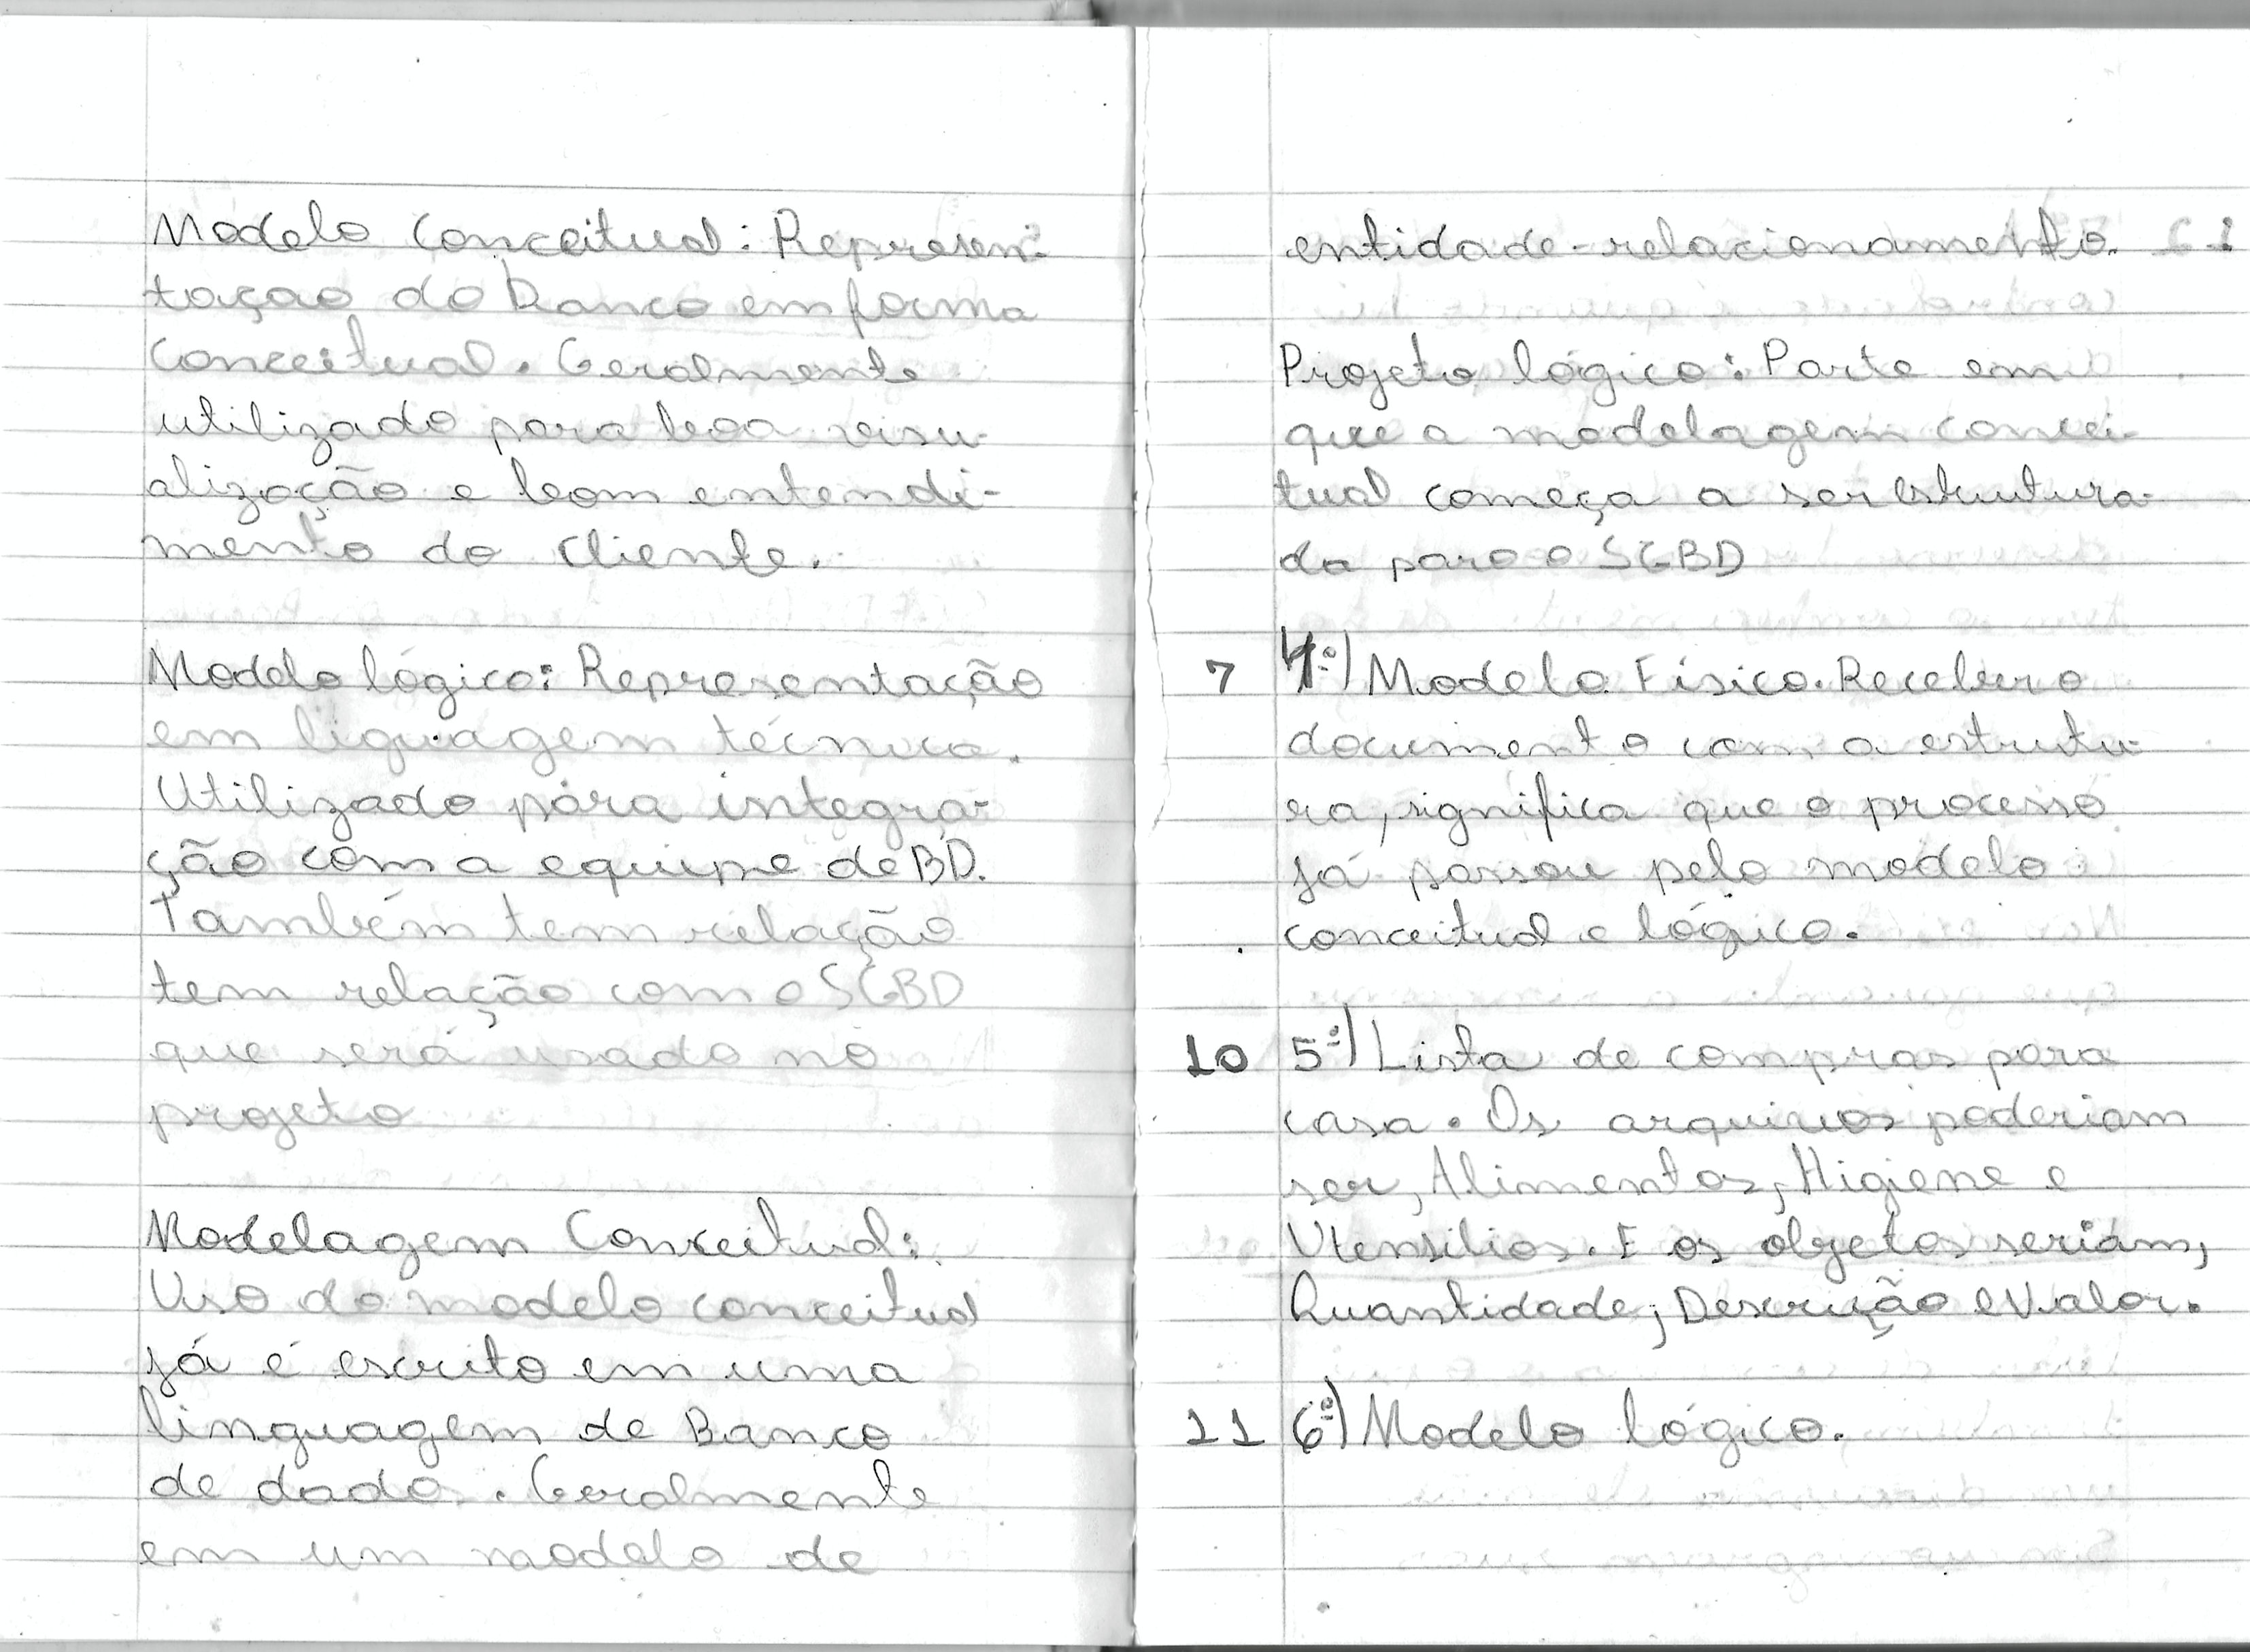 Modelo Conceitual: Represen-
taçao do banco em forma
conceitual. Geralmente
utilizado para boa visu-
alização e bom entendi-
mento do cliente.
Modelo lógico: Representação
em liguagem técnica.
Utilizado para integra-
ção com a equipe de BD.
Também tem relação
tem relação com o SGBD
que será usado no
projeto
Modelagem Conceitual:
Uso do modelo conceitual
já é escrito em uma
linguagem de Banco
de dado. Geralmente
em um modelo de
entidade-relacionamento.
Projeto lógico: Parte em
que a modelagem concei-
tual começa a ser estrutura-
da para o SGBD
7 4º) Modelo Físico. Receber o
documento com a estrutu-
ra, significa que o processo
já passou pelo modelo
conceitual e lógico.
10 5º) Lista de compras para
casa. Os arquivos poderiam
ser, Alimentos, Higiene e
Utensilios. E os objetos seriam,
Quantidade, Descrição e Valor.
11 6º) Modelo lógico.